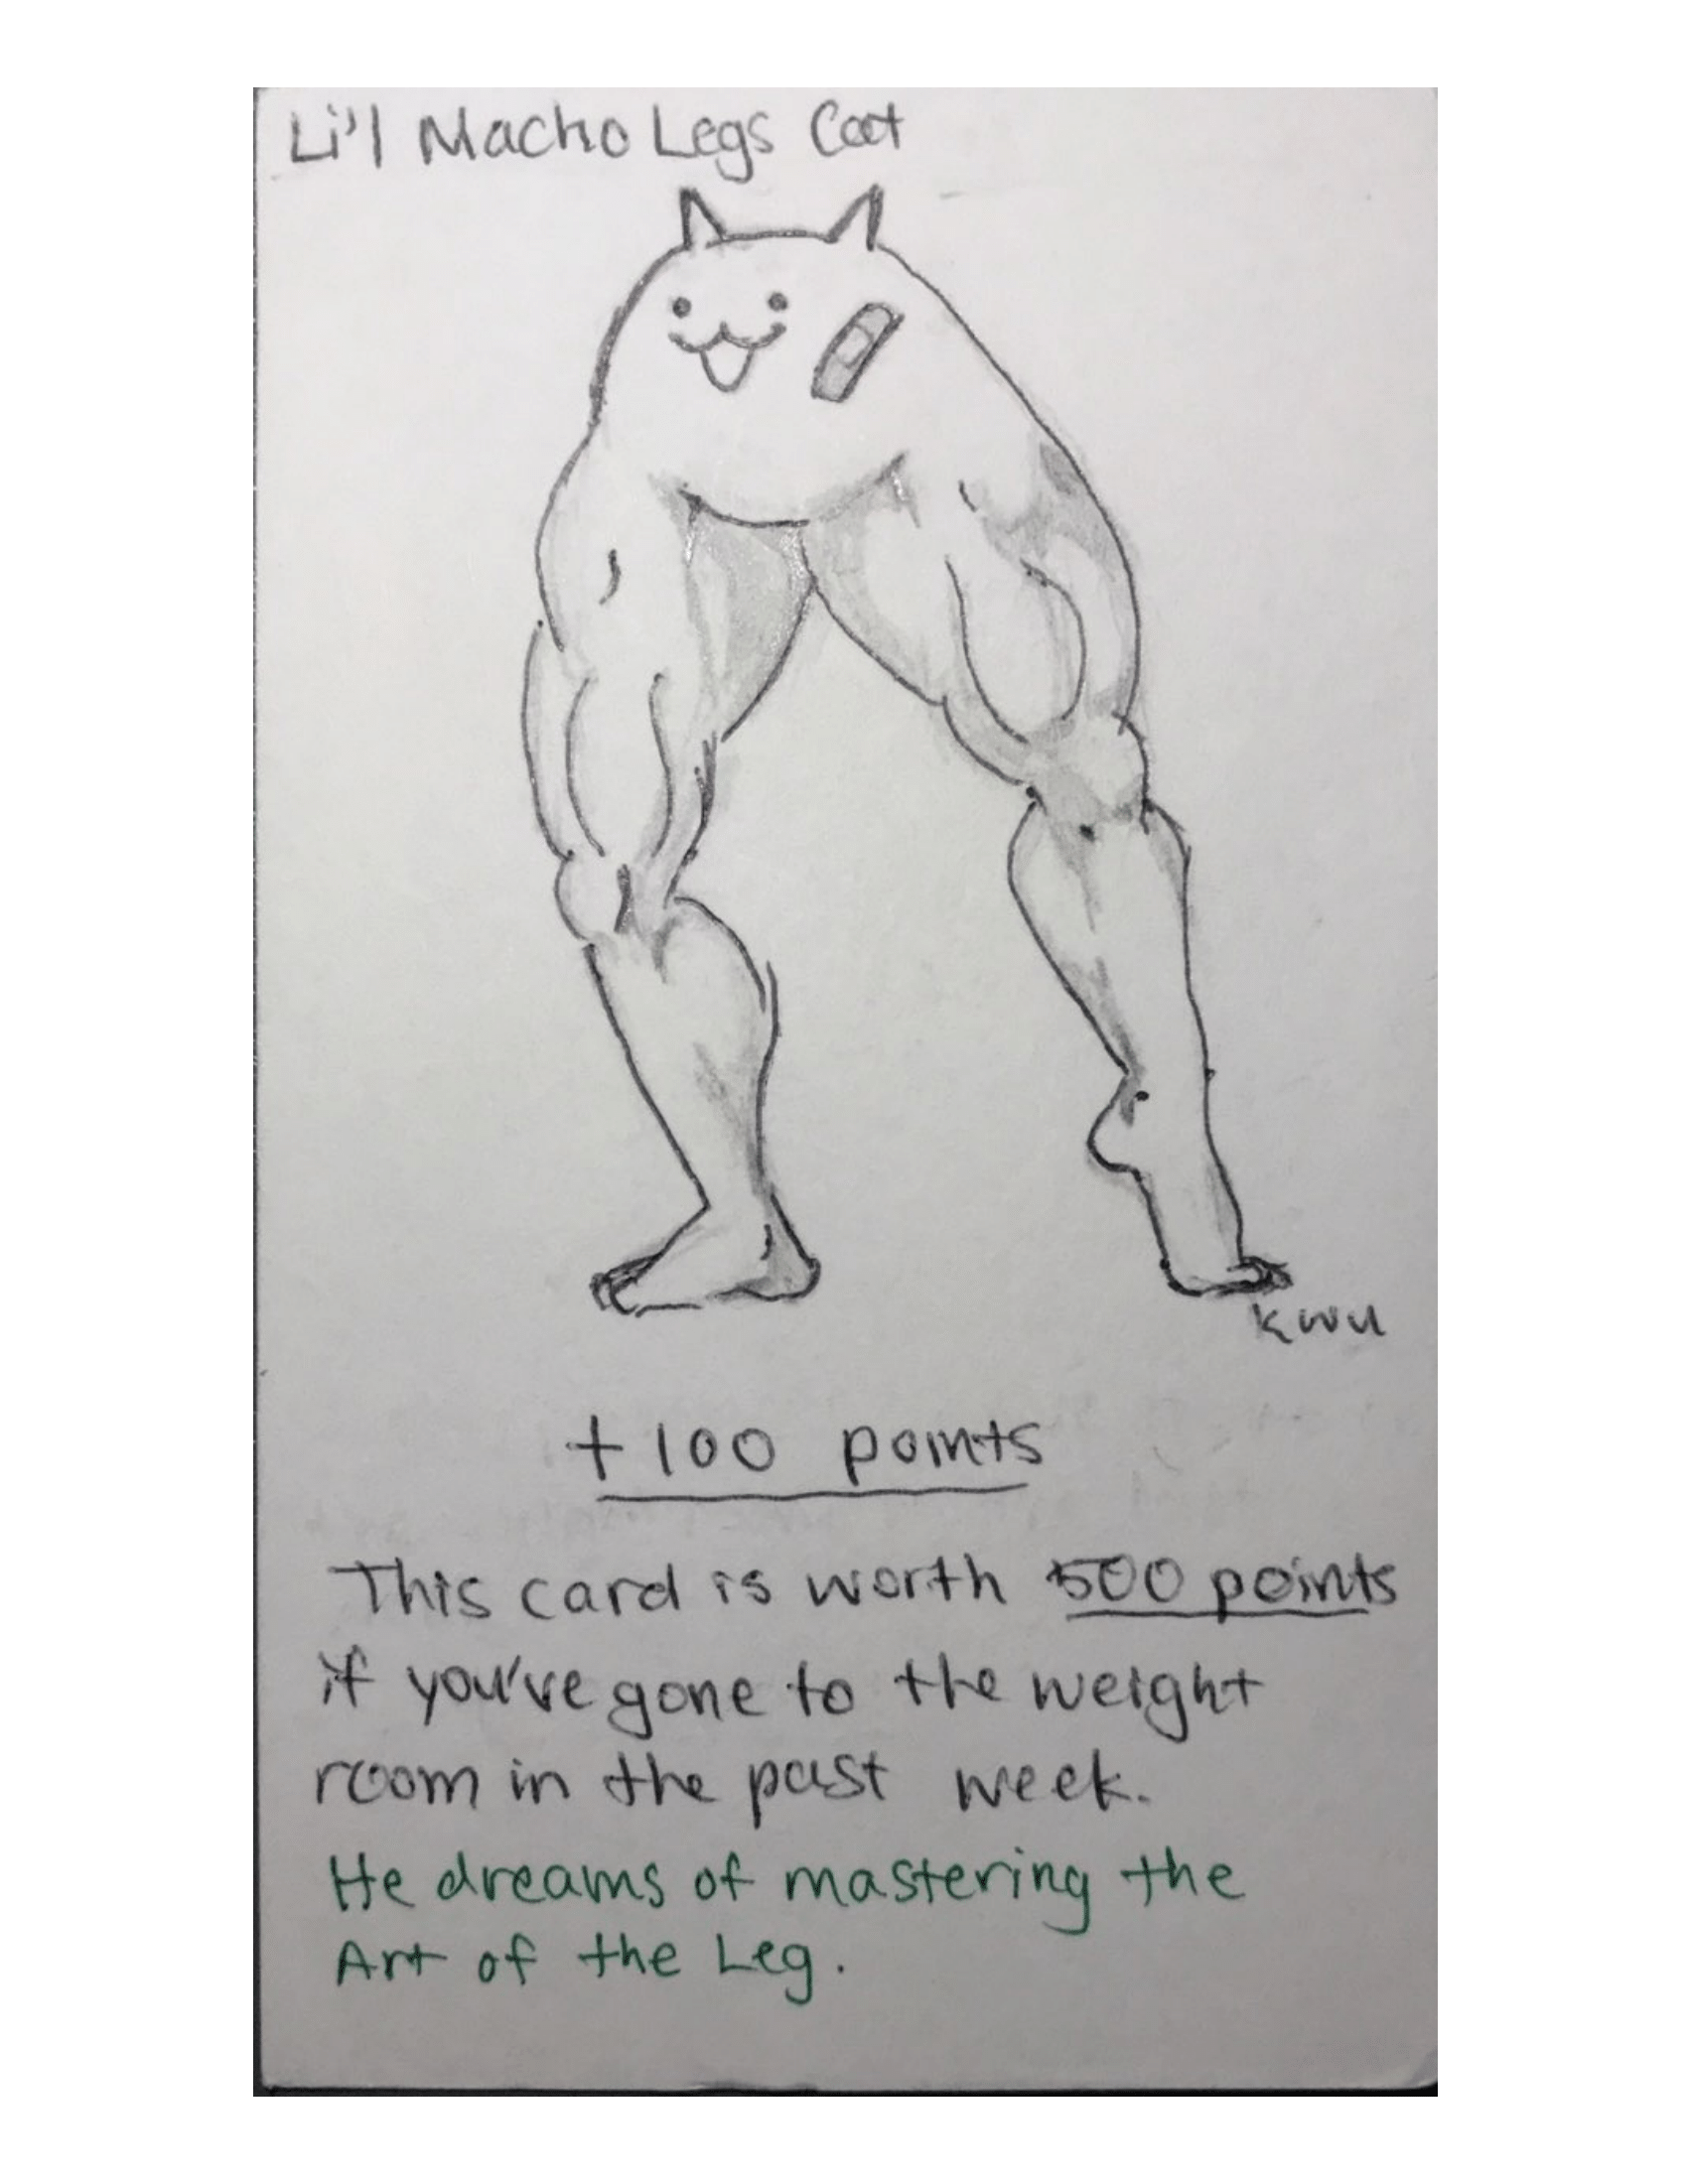 Li'l Macho Legs Cat
kwu
+100 points
This card is worth 500 points
if you've gone to the weight
room in the past week.
He dreams of mastering the
Art of the Leg.